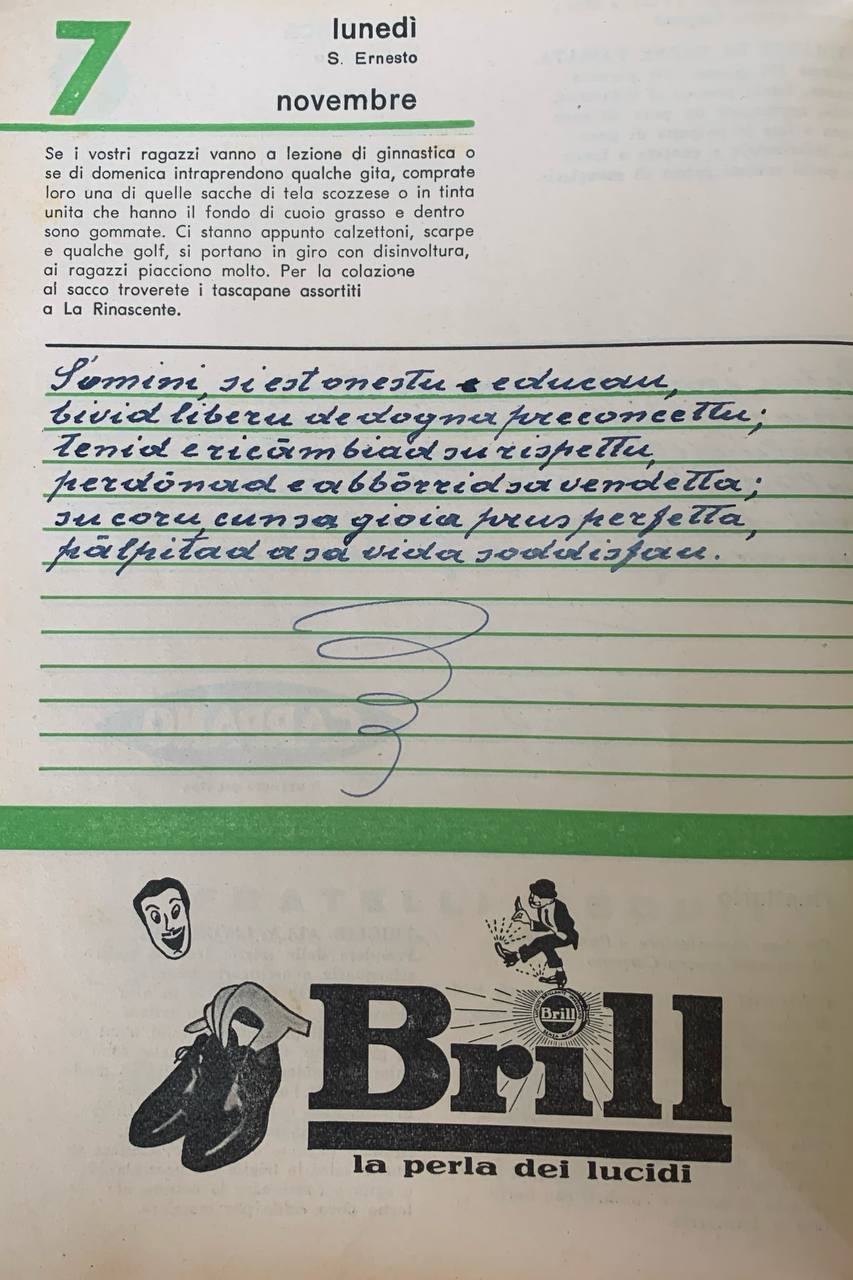 7
lunedì
S. Ernesto
novembre
Se i vostri ragazzi vanno a lezione di ginnastica o
se di domenica intraprendono qualche gita, comprate
loro una di quelle sacche di tela scozzese o in tinta
unita che hanno il fondo di cuoio grasso e dentro
sono gommate. Ci stanno appunto calzettoni, scarpe
e qualche golf, si portano in giro con disinvoltura,
ai ragazzi piacciono molto. Per la colazione
al sacco troverete i tascapane assortiti
a La Rinascente.
S'omini, si est onestu e educau,
bivid liberu de dogna preconcettu;
tenid e ricàmbiad su rispettu,
perdónad e abbòrrid sa vendetta;
su coru, cun sa gioia prus perfetta,
pàlpitad a sa vida soddisfau.
Brill
Brill
la perla dei lucidi